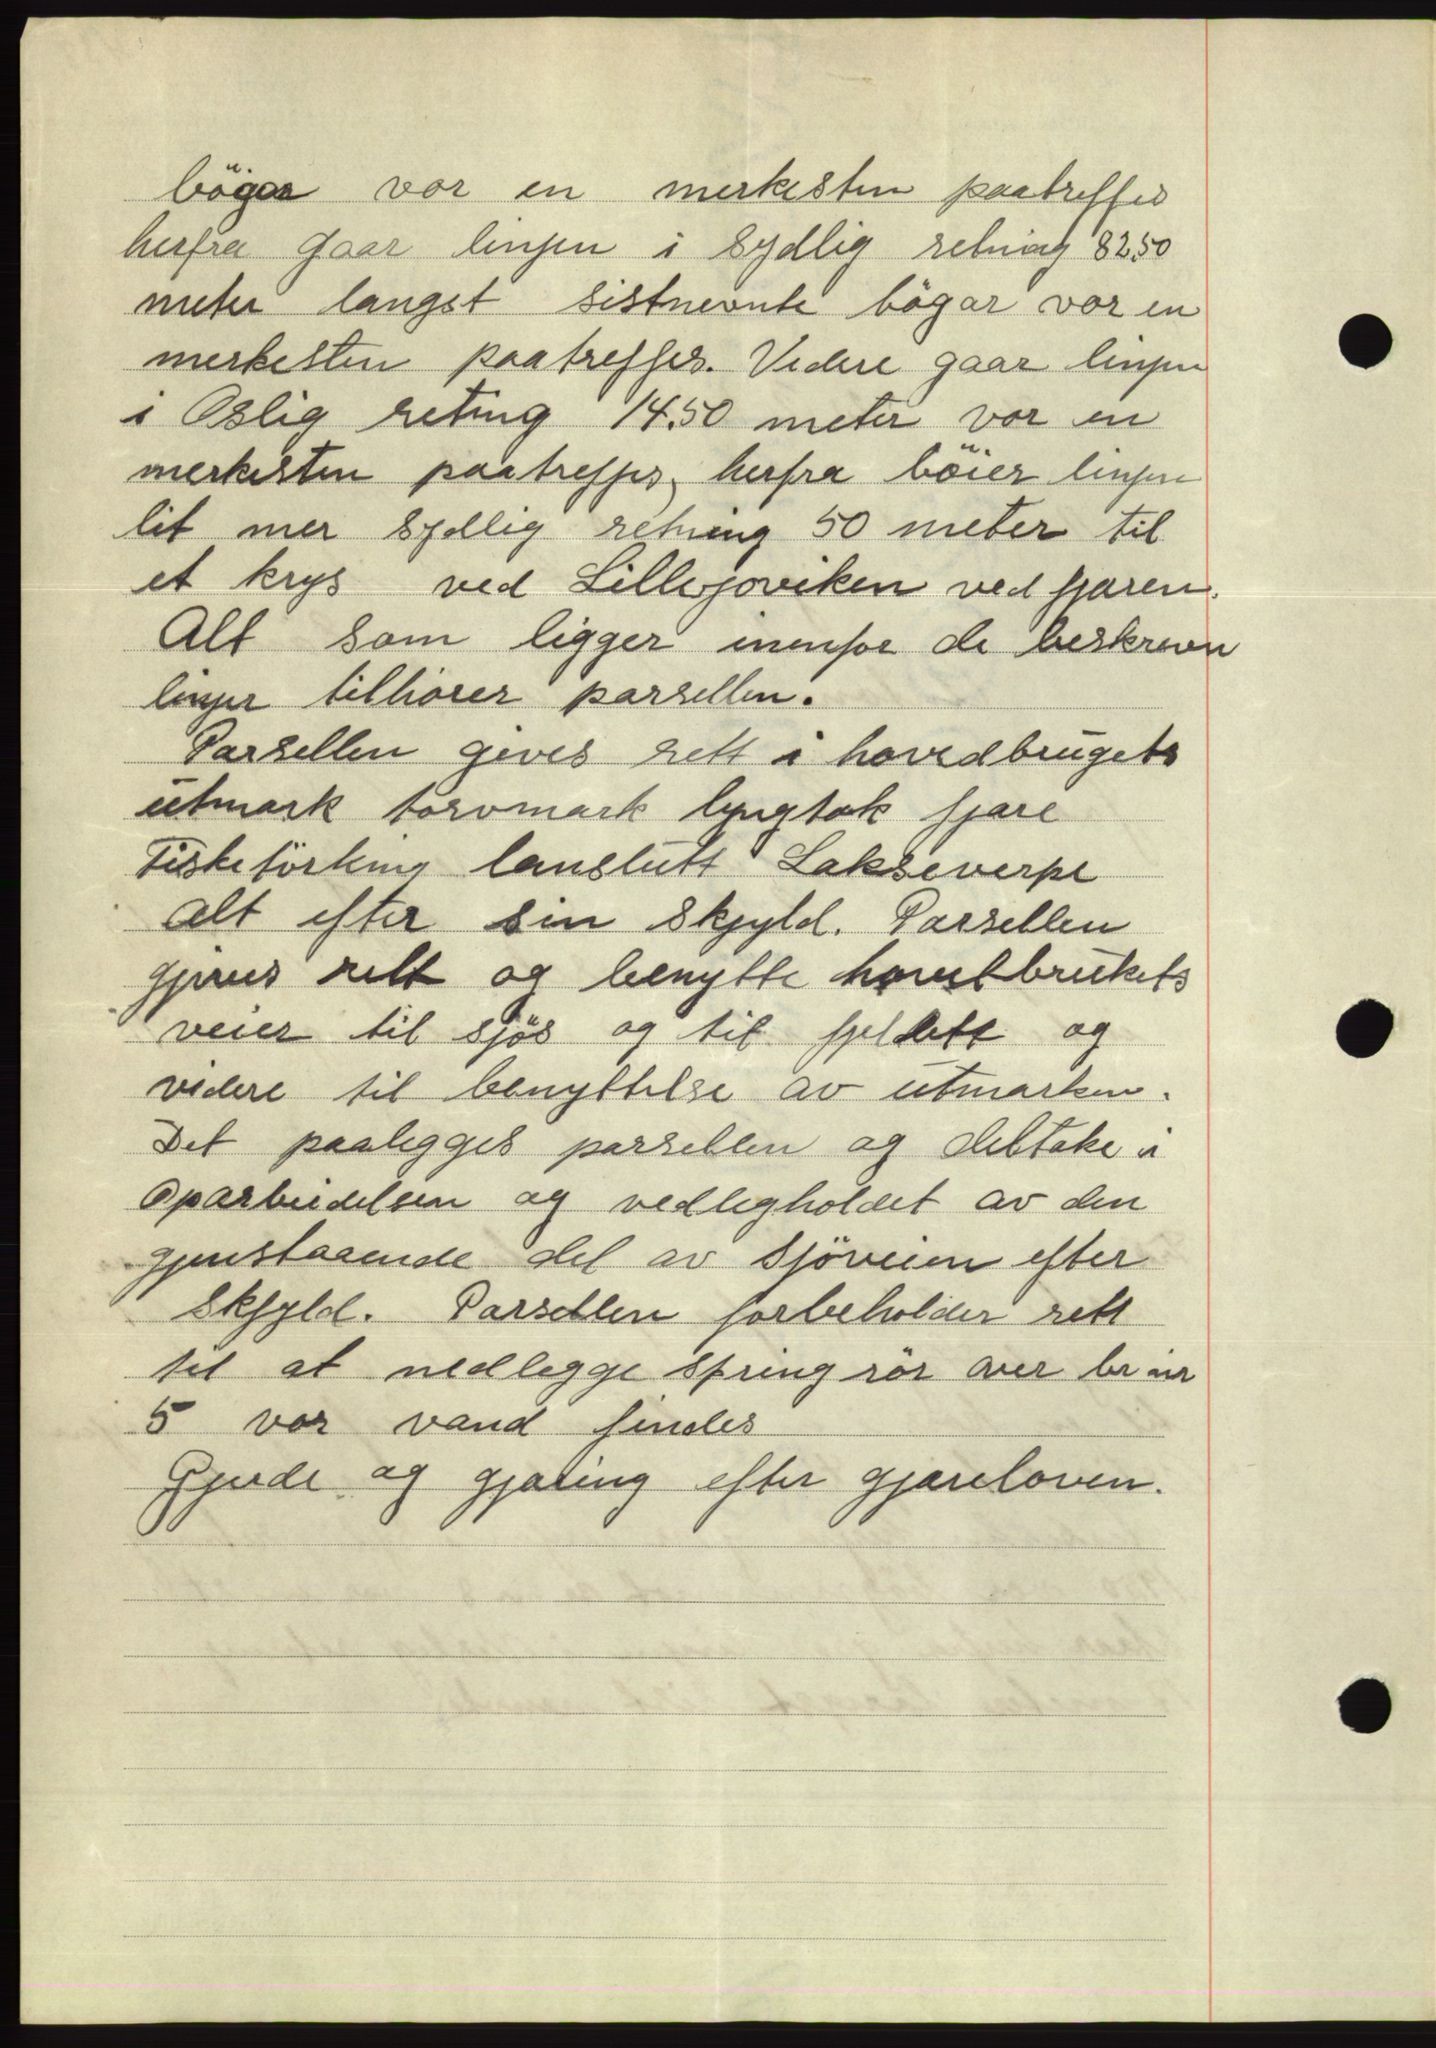 bögar vor en merkesten paatreffes
herfra gaar linjen i sydlig retning 82.50
meter langst sistnevnte bögar vor en
merkesten paatreffes. Videre gaar linjen
i Oslig reting 14.50 meter vor en
merkesten paatreffes, herfra böier linjen
lit mer sydlig retning 50 meter til
et krys ved Lillesjoviken ved fjaren.
Alt som ligger inenfor de beskreven
linjer tilhörer parsellen.
Parsellen gives rett i hovedbrugets
utmark torvmark lyngtak fjare
Fisketörking lanslutt Lakseverpe
alt efter sin skjyld. Parsellen
gjives rett og benytte hovetbrukets
veier til sjös og til fjeldett og
videre til benyttelse av utmarken.
Det paalegges parsellen og deltake i
Oparbeidelsen og vedligholdet av den
gjenstaaende del av sjöveien efter
skjyld. Parsellen forbeholder rett
til at nedlegge spring rör over br nr
5 vor vand findes
Gjerde og gjaring efter gjareloven.